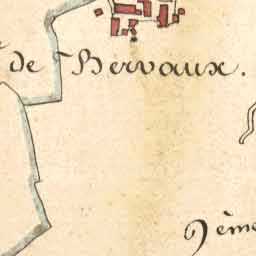 de Bervaux.
9ème